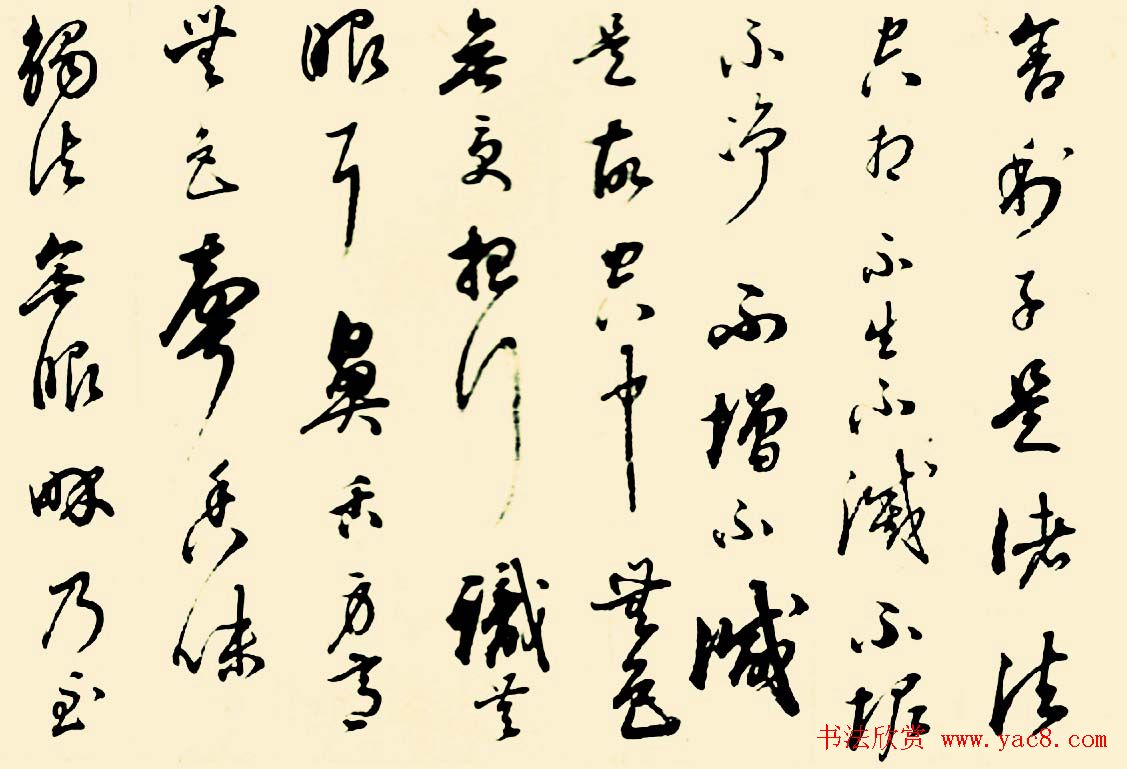 舍利子是諸法
空相不生不滅不垢
不淨不增不減
是故空中無色
無受想行識無
眼耳鼻舌身意
無色聲香味
觸法無眼界乃至
书法欣赏 www.yac8.com